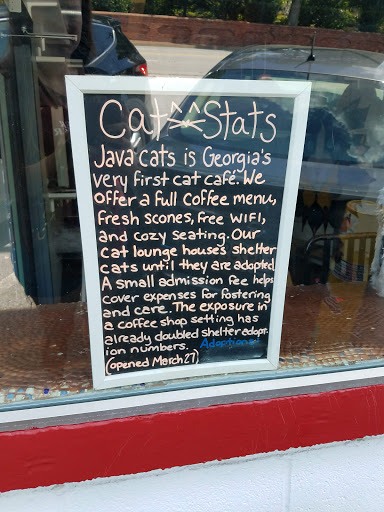 Cat Stats
Java cats is Georgia's
very first cat café. We
offer a full coffee menu,
fresh scones, free WIFI,
and cozy seating. Our
cat lounge houses shelter
cats until they are adopted.
A small admission fee helps
cover expenses for fostering
and care. The exposure in
a coffee shop setting has
already doubled shelter adopt-
ion numbers. Adoptions!
(opened March 27)